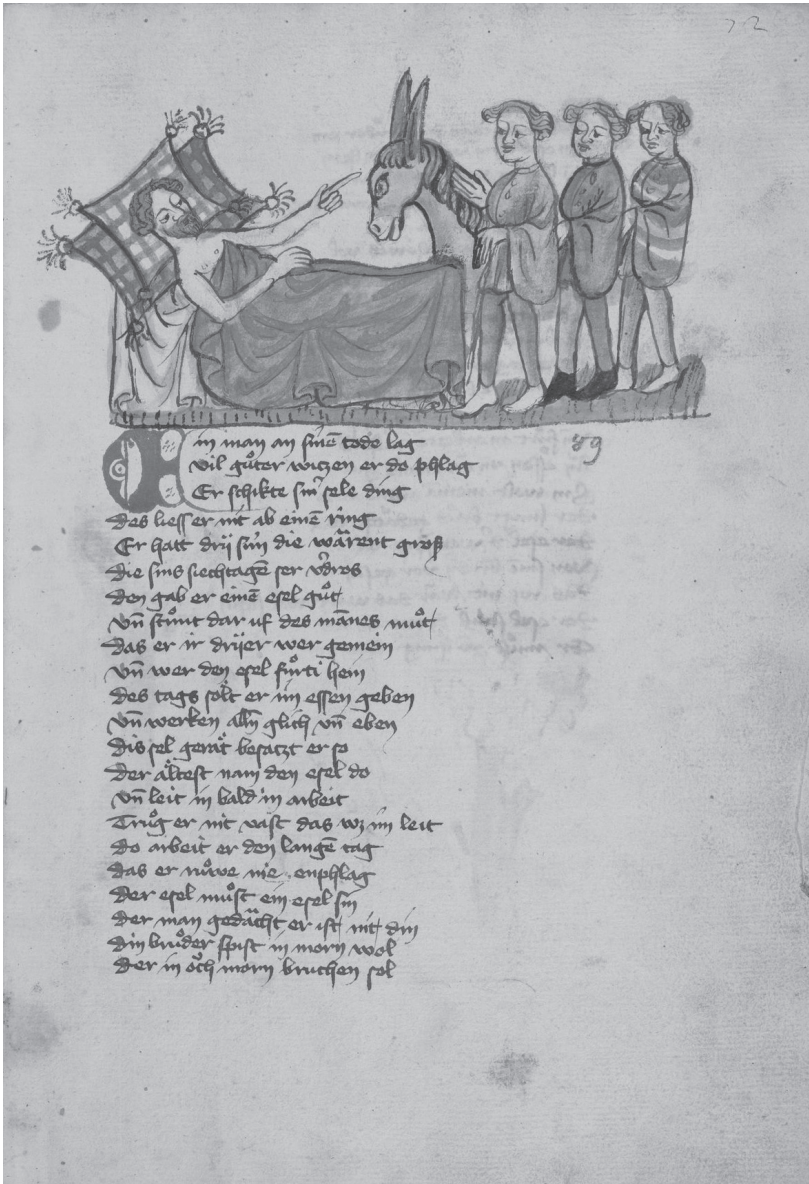 72
89
Ein man an sinē tode lag
vil gůter witzen er do phlag
Er schikte sin̄ sele ding
des liess er nit ab einē ring
Er hatt drij sün die wārent groß
die sins siechtagē ser v̄dros
den gab er einē esel gůt
vn̄ stůnt dar uf des mānes můt
das er ir drijer wer gemein
vn̄ wer den esel fůrti hein
des tags sölt er im essen geben
vn̄ werken glich vn̄ eben
dis sel gerāt besatzt er so
Der ältest nam den esel do
vn̄ leit in bald in arbeit
Trůg er nit vast das wz im leit
do arbeit er den langē tag
das er nie enphlag
der esel můst ein esel sin
der man gedächt er ist nit din
din brůder spist in morn wol
der in och morn bruchen sol